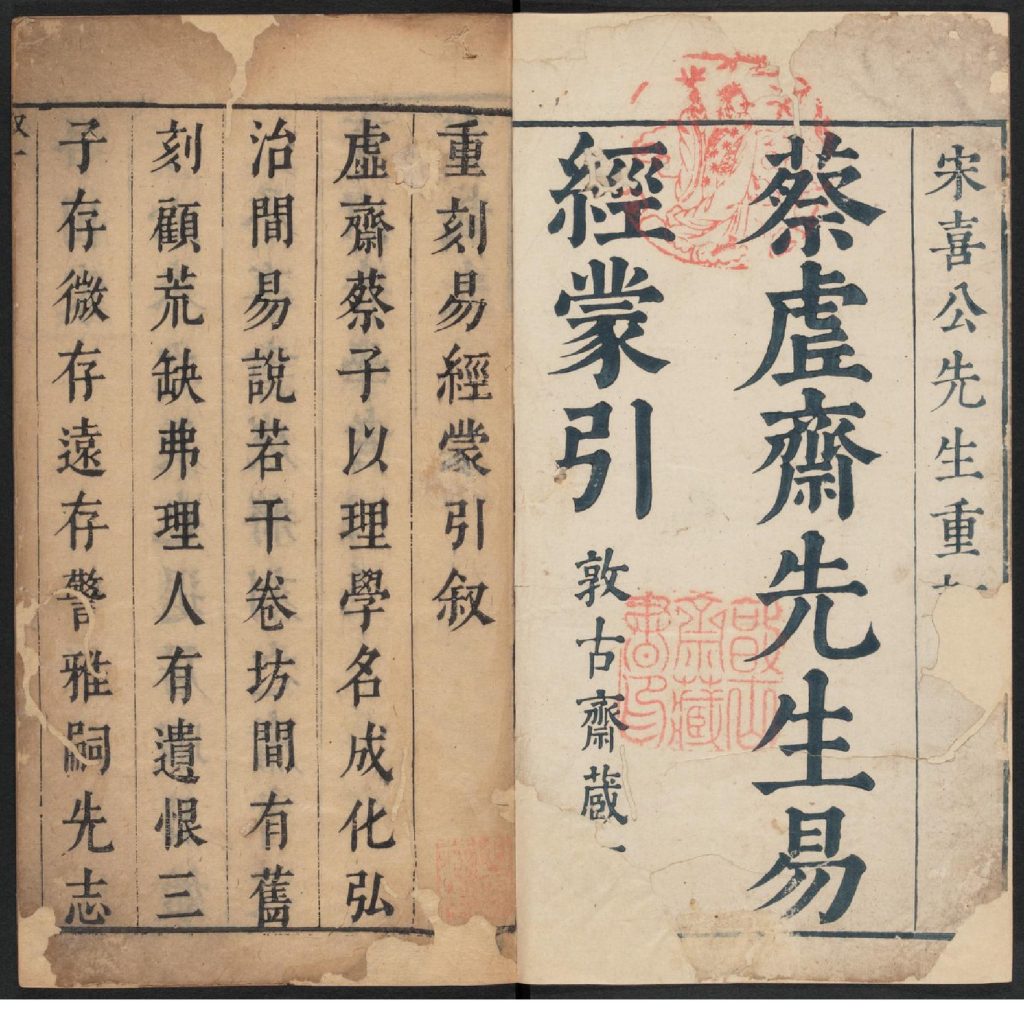 宋喜公先生重
蔡虛齋先生易
經蒙引
敦古齋蔵
重刻易經蒙引叙
虛齋蔡子以理學名成化弘
治間易說若干卷坊間有舊
刻顧荒缺弗理人有遺恨三
子存微存遠存警雅嗣先志